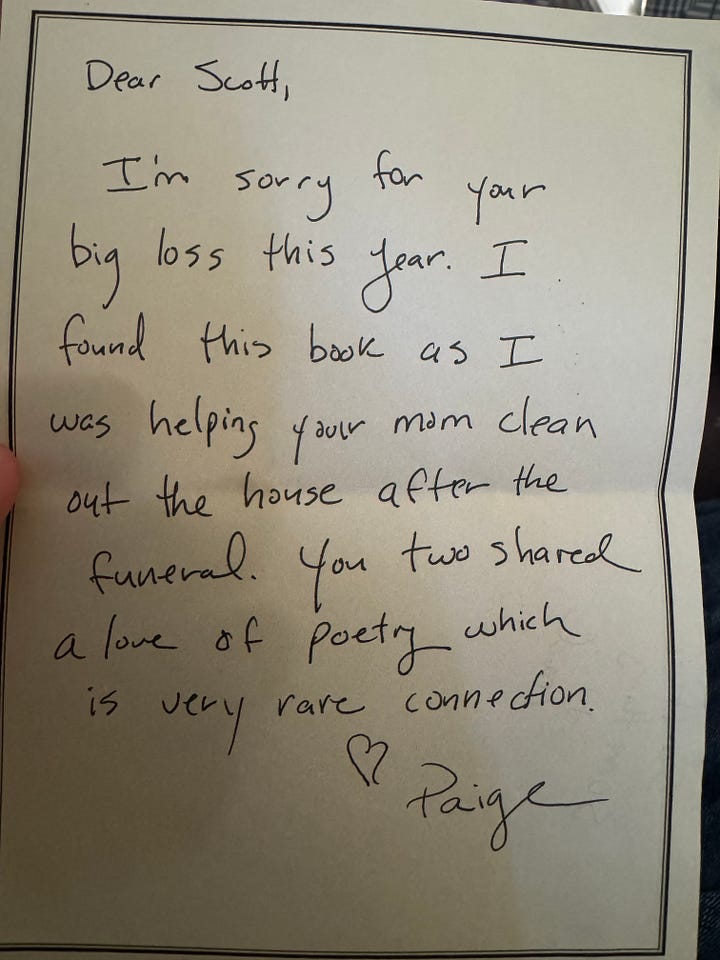 Dear Scott,
I'm sorry for your
big loss this year. I
found this book as I
was helping your mom clean
out the house after the
funeral. You two shared
a love of poetry which
is very rare connection.
♡ Paige